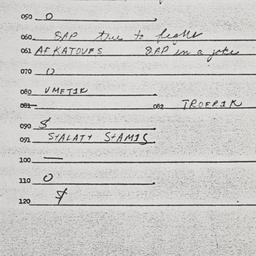 050 O
060 SAP true to
061 AFKATOUFS SAP in a joke
070 O
080 VMETIK
081 082 TROFPIK
090 $
091 STALATY STAMIS
100 —
110 O
120 $